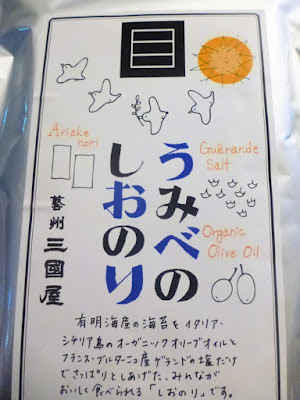 Ariake
nori
Guérande
Salt
うみべの
しおのり
Organic
Olive Oil
藝州 三國屋
有明海産の海苔をイタリア・
シチリア島のオーガニックオリーブオイルと
フランス・ブルターニュ産ゲランドの塩だけ
でさっぱりとしあげた、みんなが
おいしく食べられる「しおのり」です。